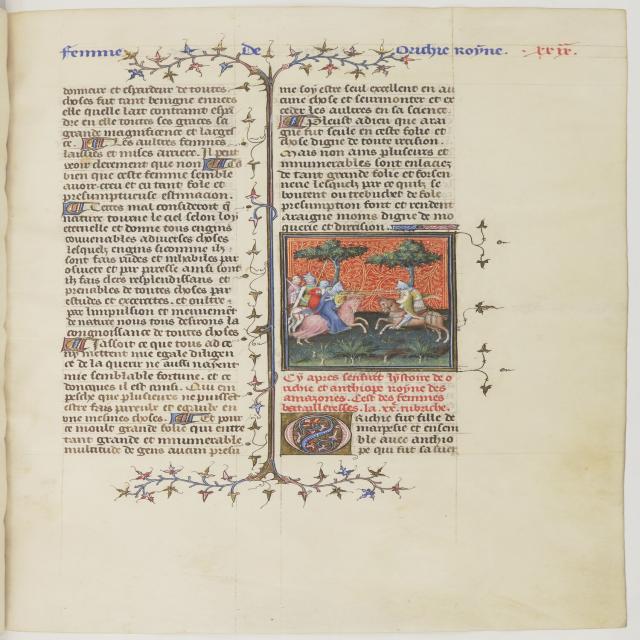 femme De Orichie royne. xx ix.
donneur et espandeur de toutes
choses fut tant benigne envers
elle quelle lait contraint espā
dre en elle toutes ses graces sa
grande magnificence et larges
ce. Les aultres femmes
laissies et mises arriere. Il peut
veoir clerement que non
bien que ceste femme semble
avoir creu et eu tant fole et
presumptueuse estimacion.
Certes mal consideroit q̄
nature tourne le ciel selon loy
eternelle et donne tous engins
convenables a diverses choses
lesquelz engins si comme ilz
sont fais rudes et inhabiles par
oysivete et par paresse ainsi sont
ilz fais clers resplendissans et
prenables de toutes choses par
estudes et excercites. et oultre
par limpulsion et mouvemēt
de nature nous tous desirons la
congnoissance de toutes choses
Ja soit ce que tous ad ce
ny mettent mie egale diligen
ce de la querir ne aussi nayent
mie semblable fortune. et
doncques il est ainsi. Qui em
pesche que plusieurs ne puissēt
estre fais pareulx et egaulx en
une mesmes choses. Et pour
ce moult grande folie qui entre
tant grande et innumerable
multitude de gens aucun presu
me soy estre seul excellent en au
cune chose et seurmonter et ex
ceder les aultres en sa science.
Pleust a dieu que arai
gne fut seule en ceste folie et
chose digne de toute irrision.
Mais non ains plusieurs et
innumerables sont enlaciez
de tant grande folie et forsen
nerie lesquelz par ce quilz se
boutent ou trebuchet de fole
presumption font et rendent
araigne moins digne de mo
querie et derision.
Cy apres sensuit lystoire de o
richie et anthiope royne des
amazones. Cest des femmes
bataillesses. la. xx. rubriche.
Orichie fut fille de
marpesie et ensem
ble avec anthio
pe qui fut sa suer